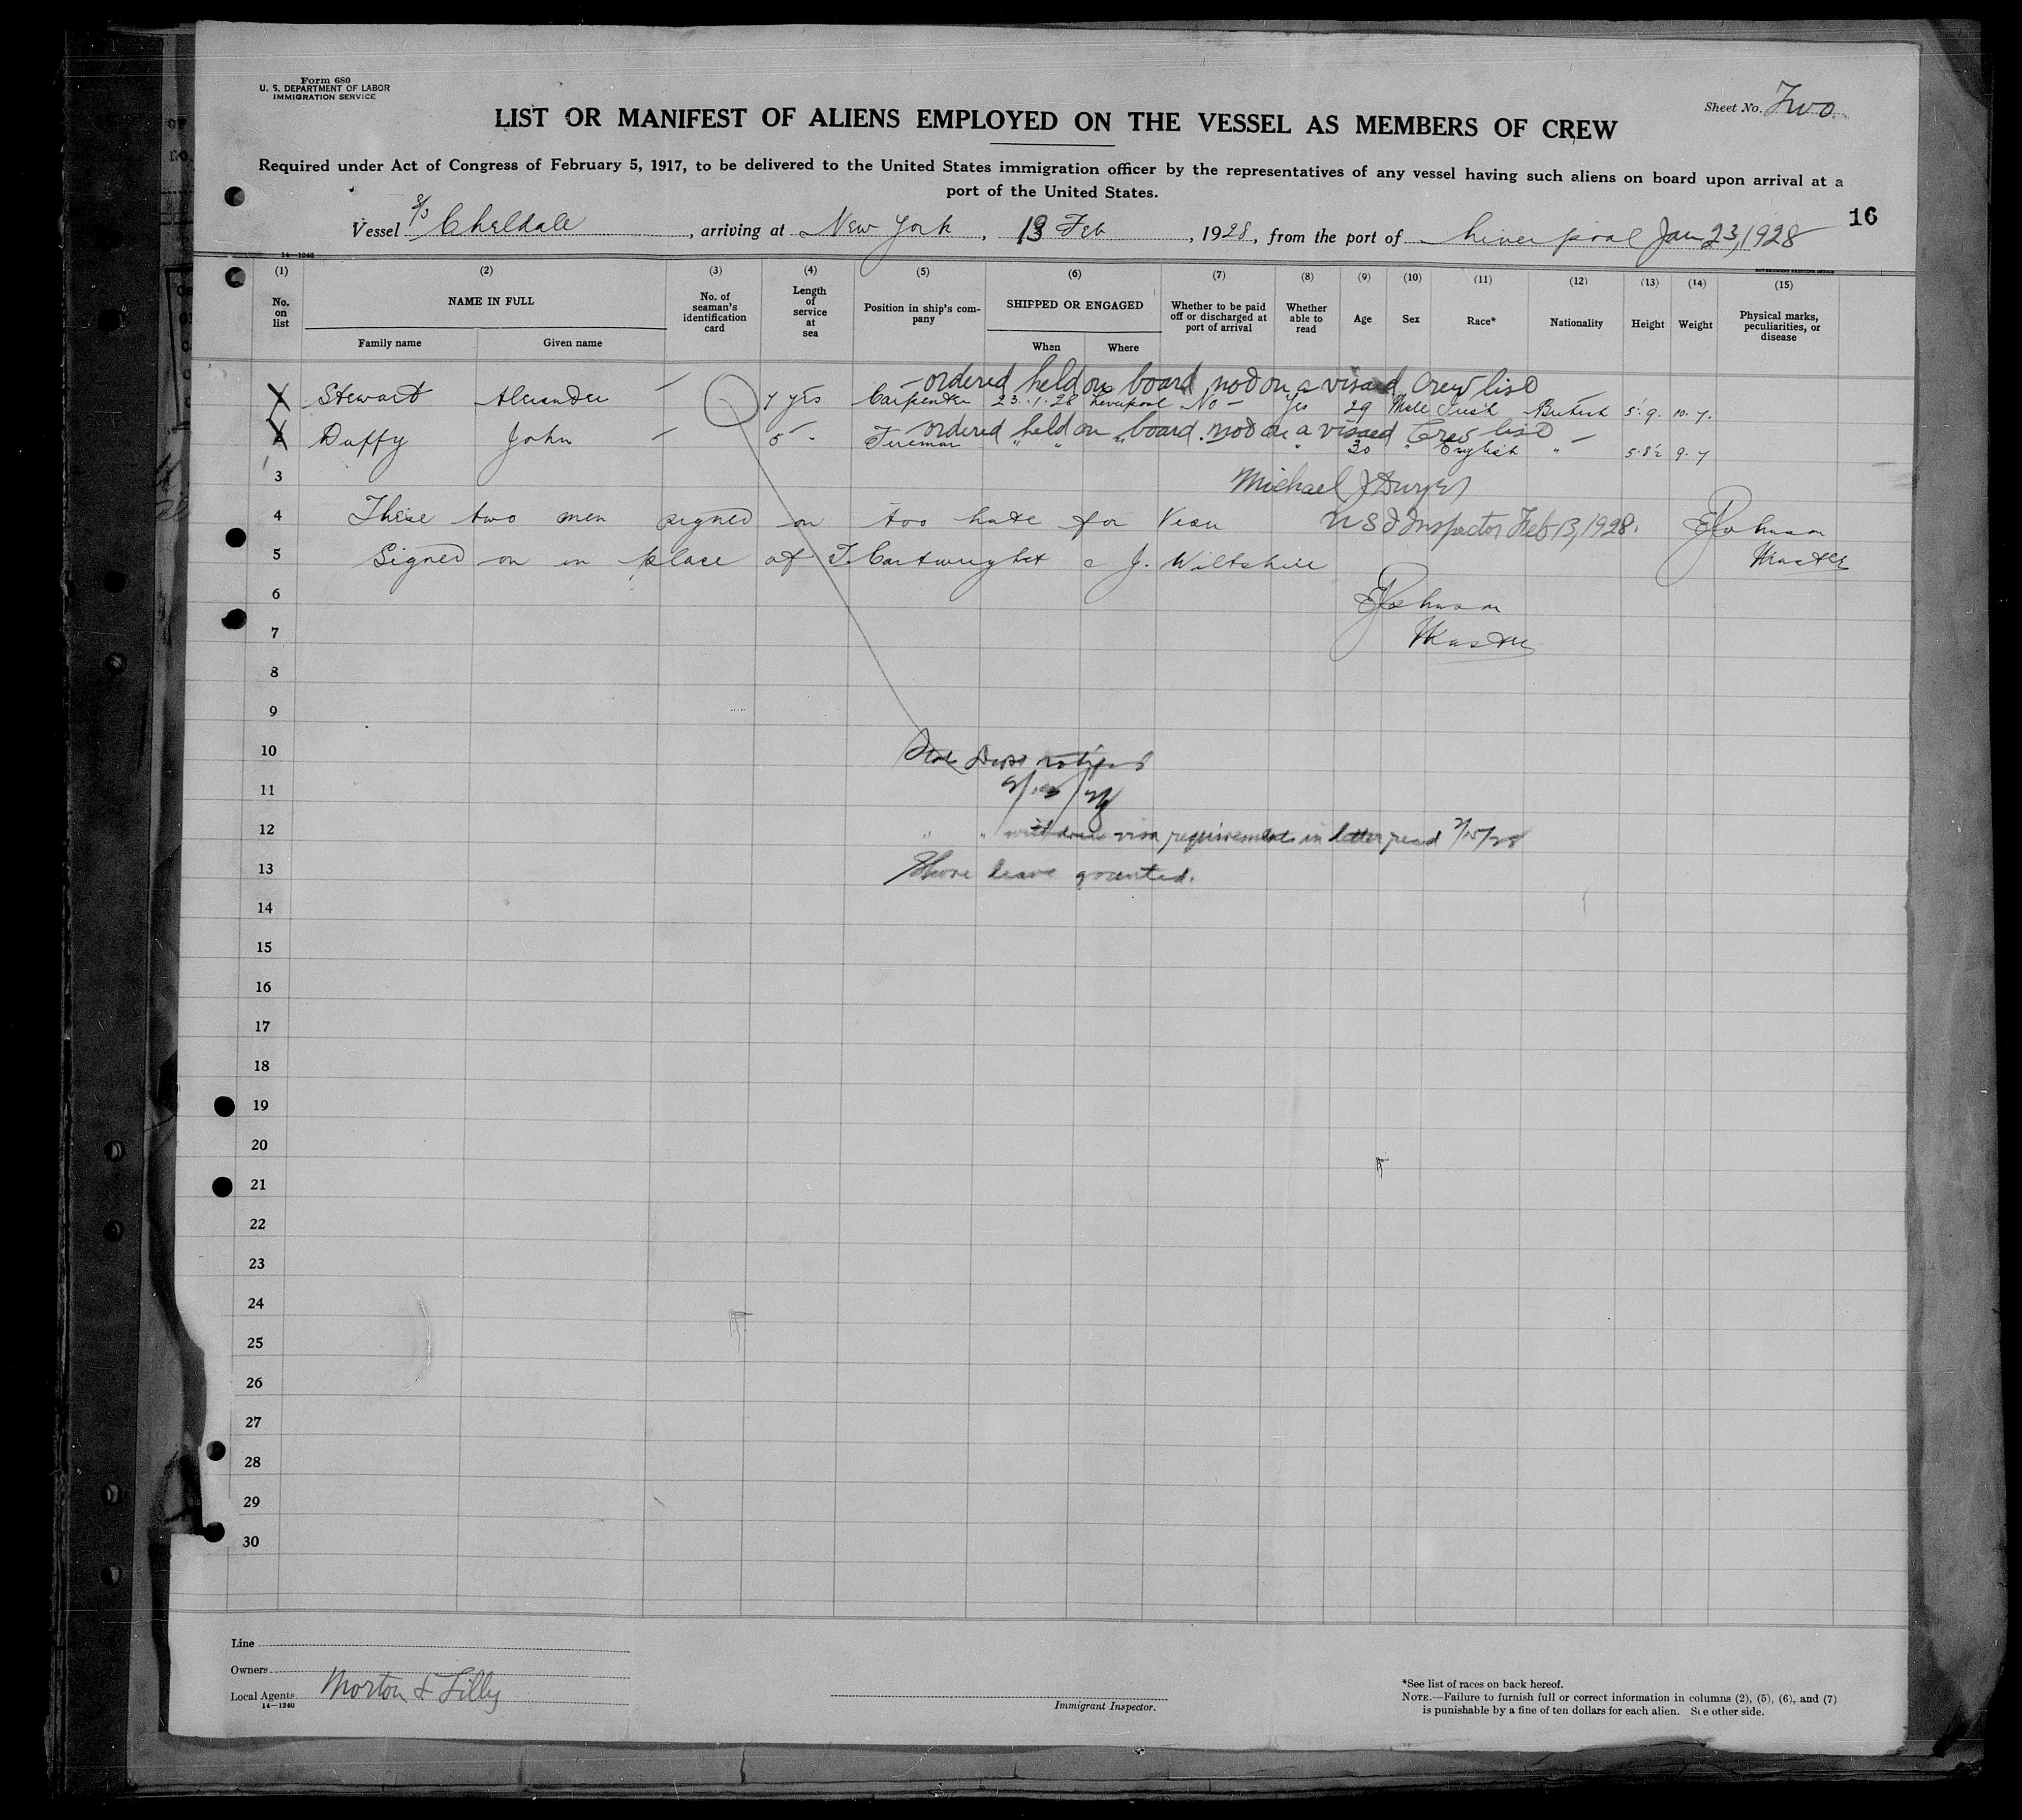 Form 680
U. S. DEPARTMENT OF LABOR
IMMIGRATION SERVICE
Sheet No. Two
LIST OR MANIFEST OF ALIENS EMPLOYED ON THE VESSEL AS MEMBERS OF CREW
Required under Act of Congress of February 5, 1917, to be delivered to the United States immigration officer by the representatives of any vessel having such aliens on board upon arrival at a
port of the United States.
16
Vessel S/S Cheldale, arriving at New York, 13 Feb, 1928, from the port of Liverpool Jan 23, 1928
14—1240
GOVERNMENT PRINTING OFFICE
(1) (2) (3) (4) (5) (6) (7) (8) (9) (10) (11) (12) (13) (14) (15)
No. on list NAME IN FULL Family name Given name No. of seaman's identification card Length of service at sea Position in ship's company SHIPPED OR ENGAGED When Where Whether to be paid off or discharged at port of arrival Whether able to read Age Sex Race* Nationality Height Weight Physical marks, peculiarities, or disease
ordered held on board not on a visaed Crew list
1 Stewart Alexander — 7 yrs Carpenter 23.1.28 Liverpool No — Yes 29 Male Irish British 5'.9. 10.7.
ordered held on board not on a visaed Crew list
2 Duffy John — 5 - Fireman " " " " 30 " English " 5.8½ 9.7
3 Michael J Dwyer
4 These two men signed on too late for Visa U S I Inspector Feb 13, 1928. EJohnson
5 Signed on in place of T. Cartwright & J. Wiltshire Master
6 EJohnson
7 Master
8
9
10 State Dept notified
11
12 " " withdrew visa requirements in letter recd 2/15/28
13 Shore leave granted.
14
15
16
17
18
19
20
21
22
23
24
25
26
27
28
29
30
Line
Owners
Local Agents Morton & Lilly
14—1240
Immigrant Inspector.
*See list of races on back hereof.
NOTE.—Failure to furnish full or correct information in columns (2), (5), (6), and (7)
is punishable by a fine of ten dollars for each alien. See other side.